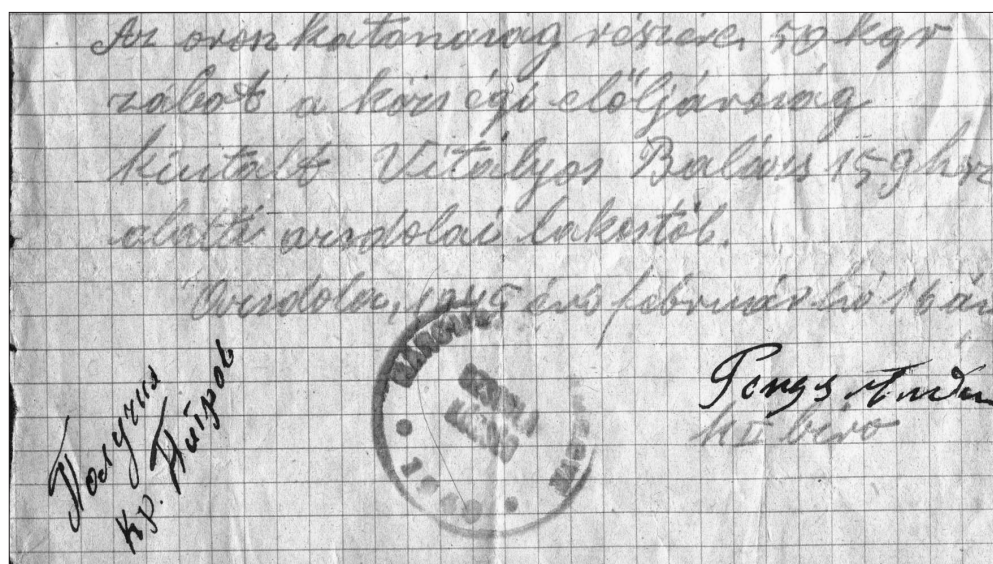 Az orosz katonaság részére 50 kgr
zabot a községi előljáróság
kiutalt Vitályos Balázs 159 hrz
alatti ozsdolai lakostól.
Ozsdola, 1945 évi február hó 16 án
Получил
Кр. Петров
II biro